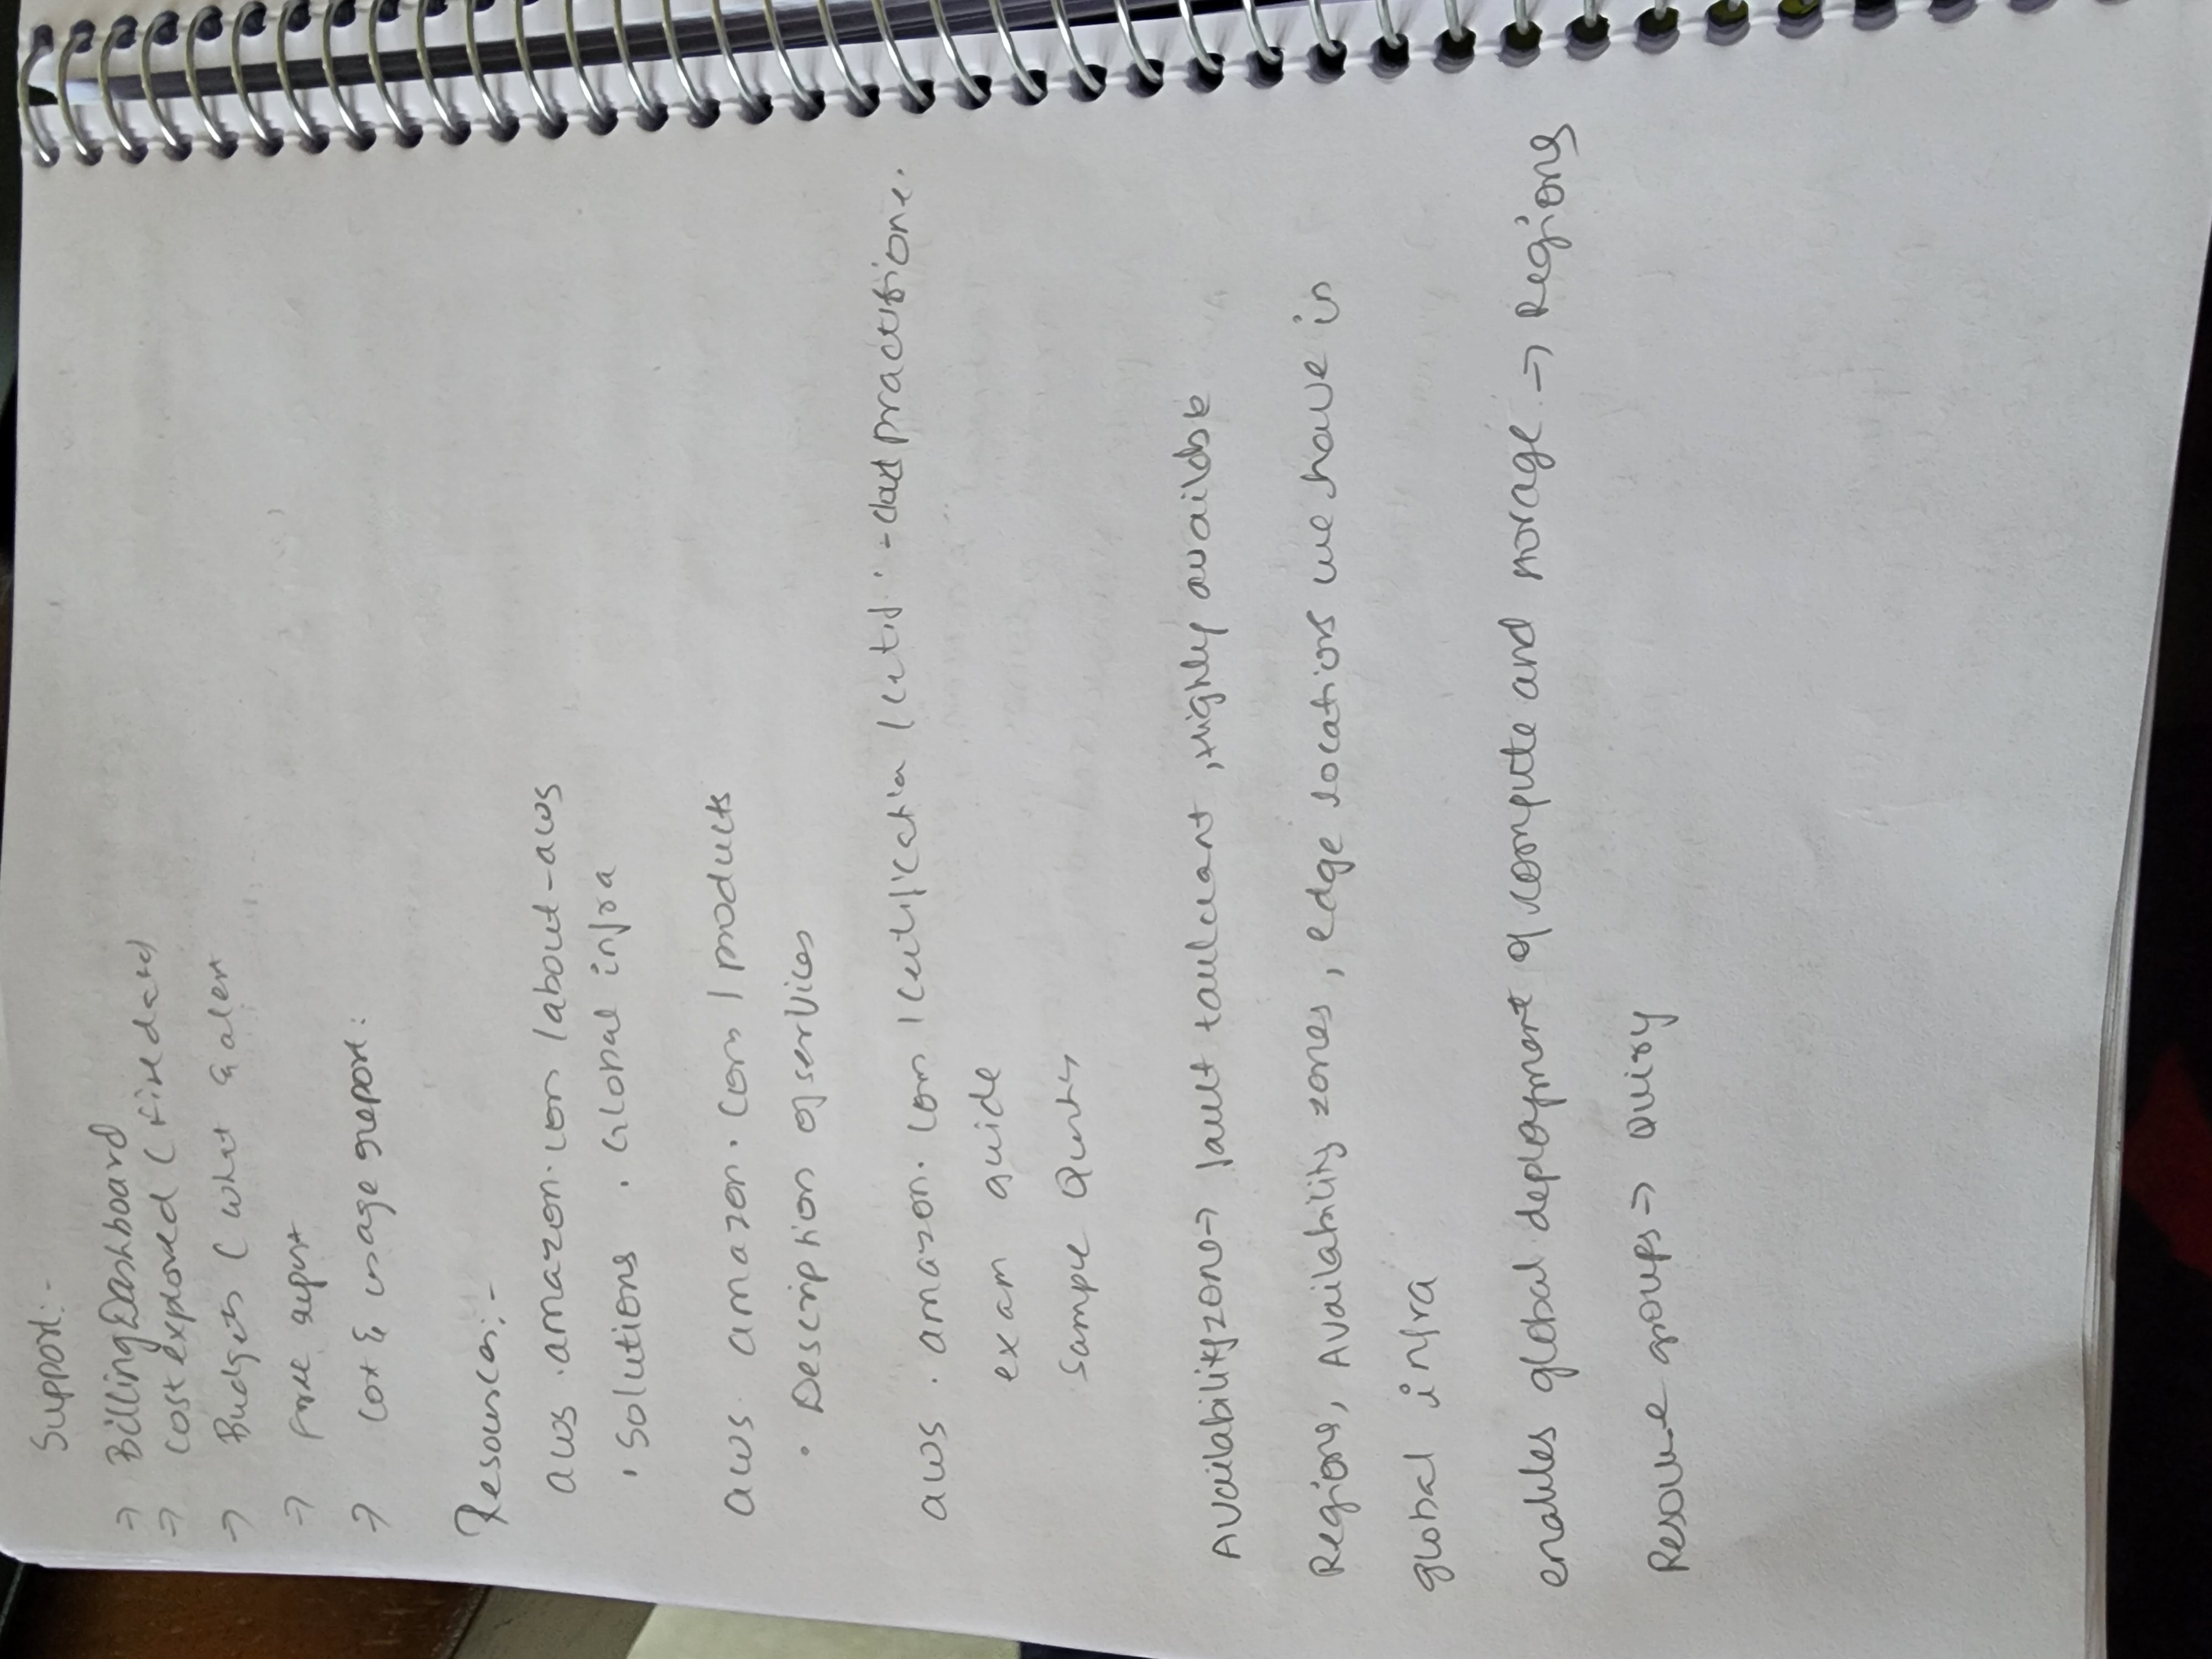 Support:-
→ Billing Dashboard
→ cost explored (
→ Budgets ( what & alert
→ Free
→ Cost & usage report:
Resources:-
aws .amazon.com /about-aws
• Solutions . Global infra
aws amazon. com / products
• Description of services
aws . amazon. com / / -cloud practitione.
exam guide
Sample
Availability zone→ fault , Highly available
Regions, Availability zones, edge locations we have in
global infra
enables global deployment of compute and storage → Regions
Resource groups→ Quiry